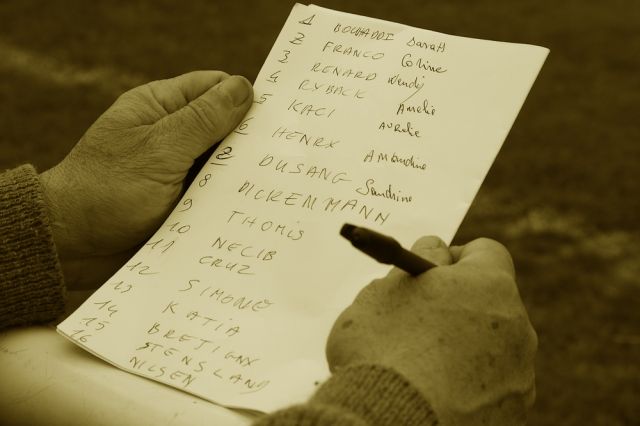 1 BOUHADDI Sarah
2 FRANCO Coline
3 RENARD Wendy
4 RYBACK Amelie
5 KACI Aurelie
6 HENRY Amandine
7 DUSANG Sandrine
8 DICKENMANN
9 THOMIS
10 NECIB
11 CRUZ
12 SIMONE
13 KATIA
14 BRETIGNY
15 STENSLAND
16 NILSEN